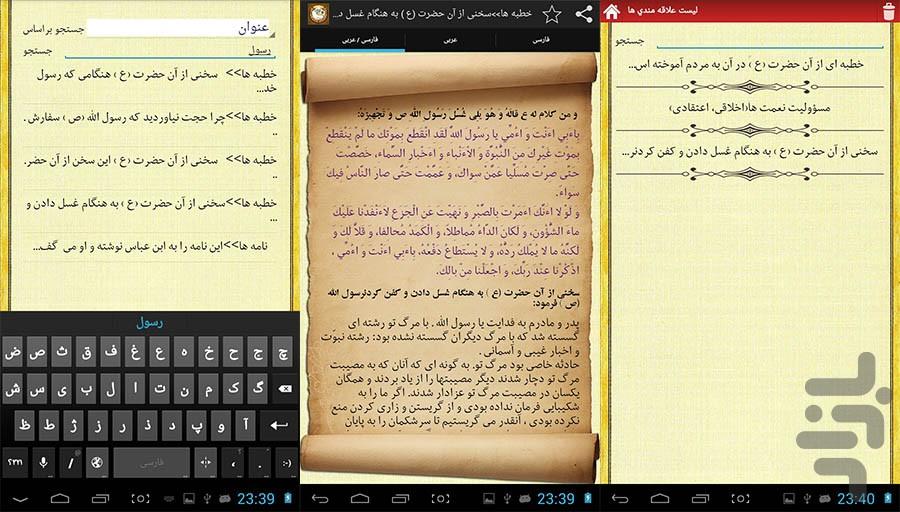 عنوان
جستجو بر اساس
رسول
جستجو
خطبه ها>> سخنی از آن حضرت (ع ) هنگامی که رسول
خد...
خطبه ها>>چرا حجت نیاوردید که رسول الله (ص ) سفارش .
..
خطبه ها>> سخنی از آن حضرت (ع ) این سخن از آن حضر.
..
خطبه ها>>سخنی از آن حضرت (ع ) به هنگام غسل دادن و
...
نامه ها>>این نامه را به ابن عباس نوشته و او می گف...
رسول
ض ص ث ق ف غ ع ه خ ح ج چ
ش س ی ب ل ا ت ن م ک گ
ظ ط ژ ز ر ذ د پ و آ
؟۱۲۳ / فارسی ، . :-)
23:39
خطبه ها>>سخنی از آن حضرت (ع ) به هنگام غسل د...
فارسی
عربی
فارسی / عربی
و من کلام له ع قاله و هُو یلی غُسْل رسُول الله ص و تجْهیزهُ:
باءبی اءنْت و اءُمّی یا رسُول اللّه لقد انْقطع بموْتک ما لمْ ینْقطعْ
بموْت غیْرک من النُّبُوّة و الاءنْباء و اءخْبار السّماء، خصّصْت
حتّى صرْت مُسلّیا عمّن سواک، و عمّمْت حتّى صار النّاسُ فیک
سواء.
و لوْ لا اءنّک اءمرْت بالصّبْر و نهیْت عن الْجزع لاءنْفدْنا علیْک
ماء الشُّؤُون، و لکان الدّاءُ مُماطلا، و الْکمدُ مُحالفا، و قلاّ لک و
لکنّهُ ما لا یُمْلکُ ردُّهُ، و لا یُسْتطاعُ دفْعُهُ، باءبی اءنْت و اءُمّی ،
اذْکُرْنا عنْد ربّک، و اجْعلْنا منْ بالک.
سخنی از آن حضرت (ع ) به هنگام غسل دادن و کفن کردنرسول الله
(ص ) فرمود:
پدر و مادرم به فدایت یا رسول الله . با مرگ تو رشته ای
گسسته شد که با مرگ دیگران گسسته نشده بود: رشته نبوّت
و اخبار غیبی و آسمانی .
حادثه خاصی بود مرگ تو. به گونه ای که آنان که به مصیبت
مرگ تو دچار شدند دیگر مصیبتها را از یاد بردند و همگان
یکسان در مصیبت مرگ تو عزادار شدند. اگر ما را به
شکیبایی فرمان نداده بودی و از گریستن و زاری کردن منع
نکرده بودی ، آنقدر می گریستیم تا سرشکمان را به پایان
23:39
لیست علاقه مندي ها
جستجو
خطبه ای از آن حضرت (ع ) در آن به مردم آموخته اس...
مسؤولیت نعمت ها(اخلاقی، اعتقادی)
سخنی از آن حضرت (ع ) به هنگام غسل دادن و کفن کردنر...
23:40
بازار